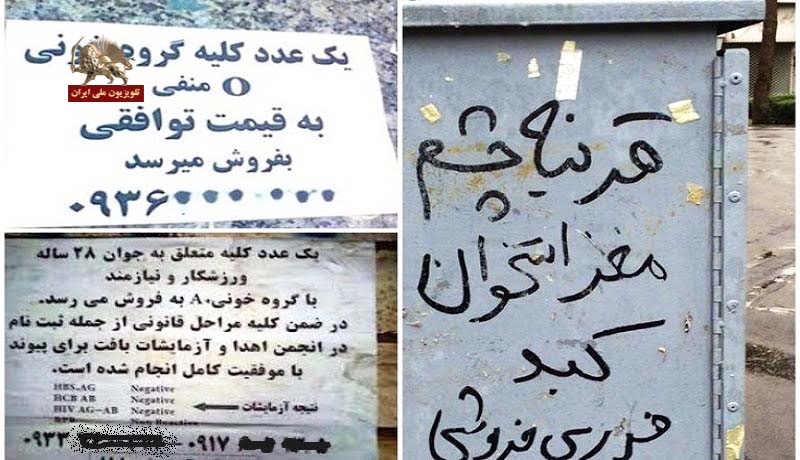 یک عدد کلیه گروه خونی
O منفی
به قیمت توافقی
بفروش میرسد
۰۹۳۶
تلویزیون ملی ایران
یک عدد کلیه متعلق به جوان ۲۸ ساله
ورزشکار و نیازمند
با گروه خونی A+ به فروش می رسد.
در ضمن کلیه مراحل قانونی از جمله ثبت نام
در انجمن اهدا و آزمایشات بافت برای پیوند
با موفقیت کامل انجام شده است.
HBS.AG Negative
HCB AB Negative
HIV AG-AB Negative
نتیجه آزمایشات
۰۹۳۳ ۰۹۱۷
قرنیه چشم
مغز استخوان
کبد
فوری فروشی